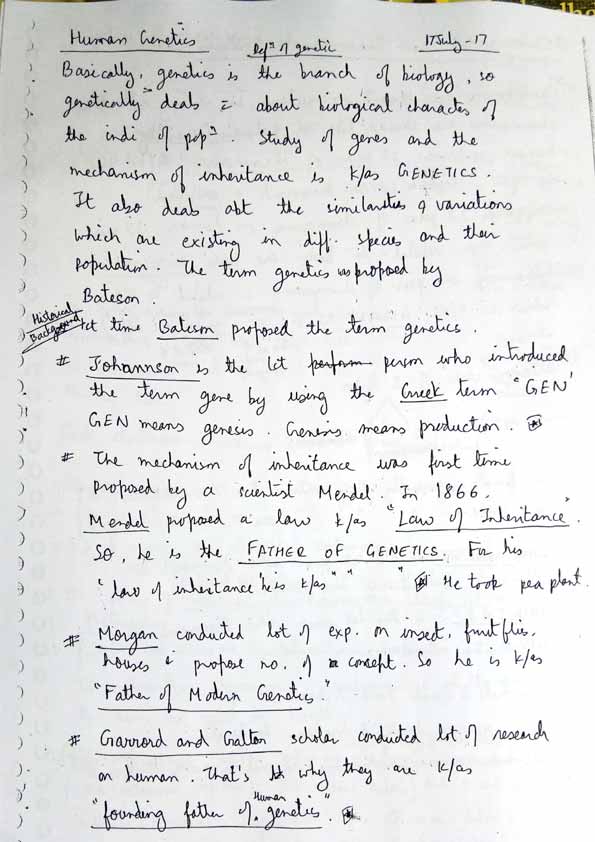 Human Genetics Defn of genetic 17July-17
Basically, genetics is the branch of biology, so
genetically deals = about biological character of
the indi of popn. Study of genes and the
mechanism of inheritance is k/as GENETICS.
It also deals abt the similarities & variations
which are existing in diff. species and their
population. The term genetics was proposed by
Bateson.
Historical
Background
1ct time Bateson proposed the term genetics.
# Johannson is the 1ct perform person who introduced
the term gene by using the Greek term "GEN'
GEN means genesis. Genesis means production.
# The mechanism of inheritance was first time
proposed by a scientist Mendel. In 1866.
Mendel proposed a law k/as "Law of Inheritance".
So, he is the FATHER OF GENETICS. For his
"law of inheritance" he is k/as " " " He took pea plant.
# Morgan conducted lot of exp. on insect, fruit flies,
houses & propose no. of concept. So he is k/as
"Father of Modern Genetics."
# Garrord and Galton scholar conducted lot of research
on human. That's why they are k/as
"founding father of Human genetics".